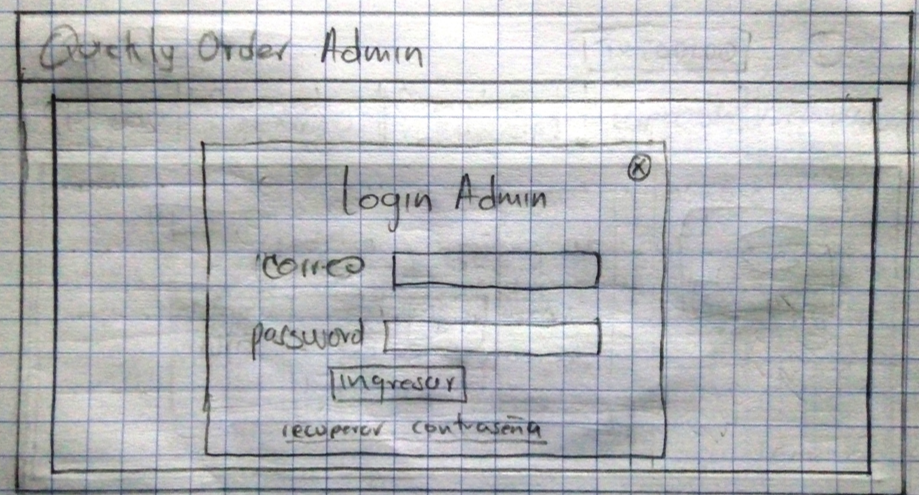 Quickly Order Admin
ⓧ
Login Admin
correo
password
ingresar
recuperar contraseña